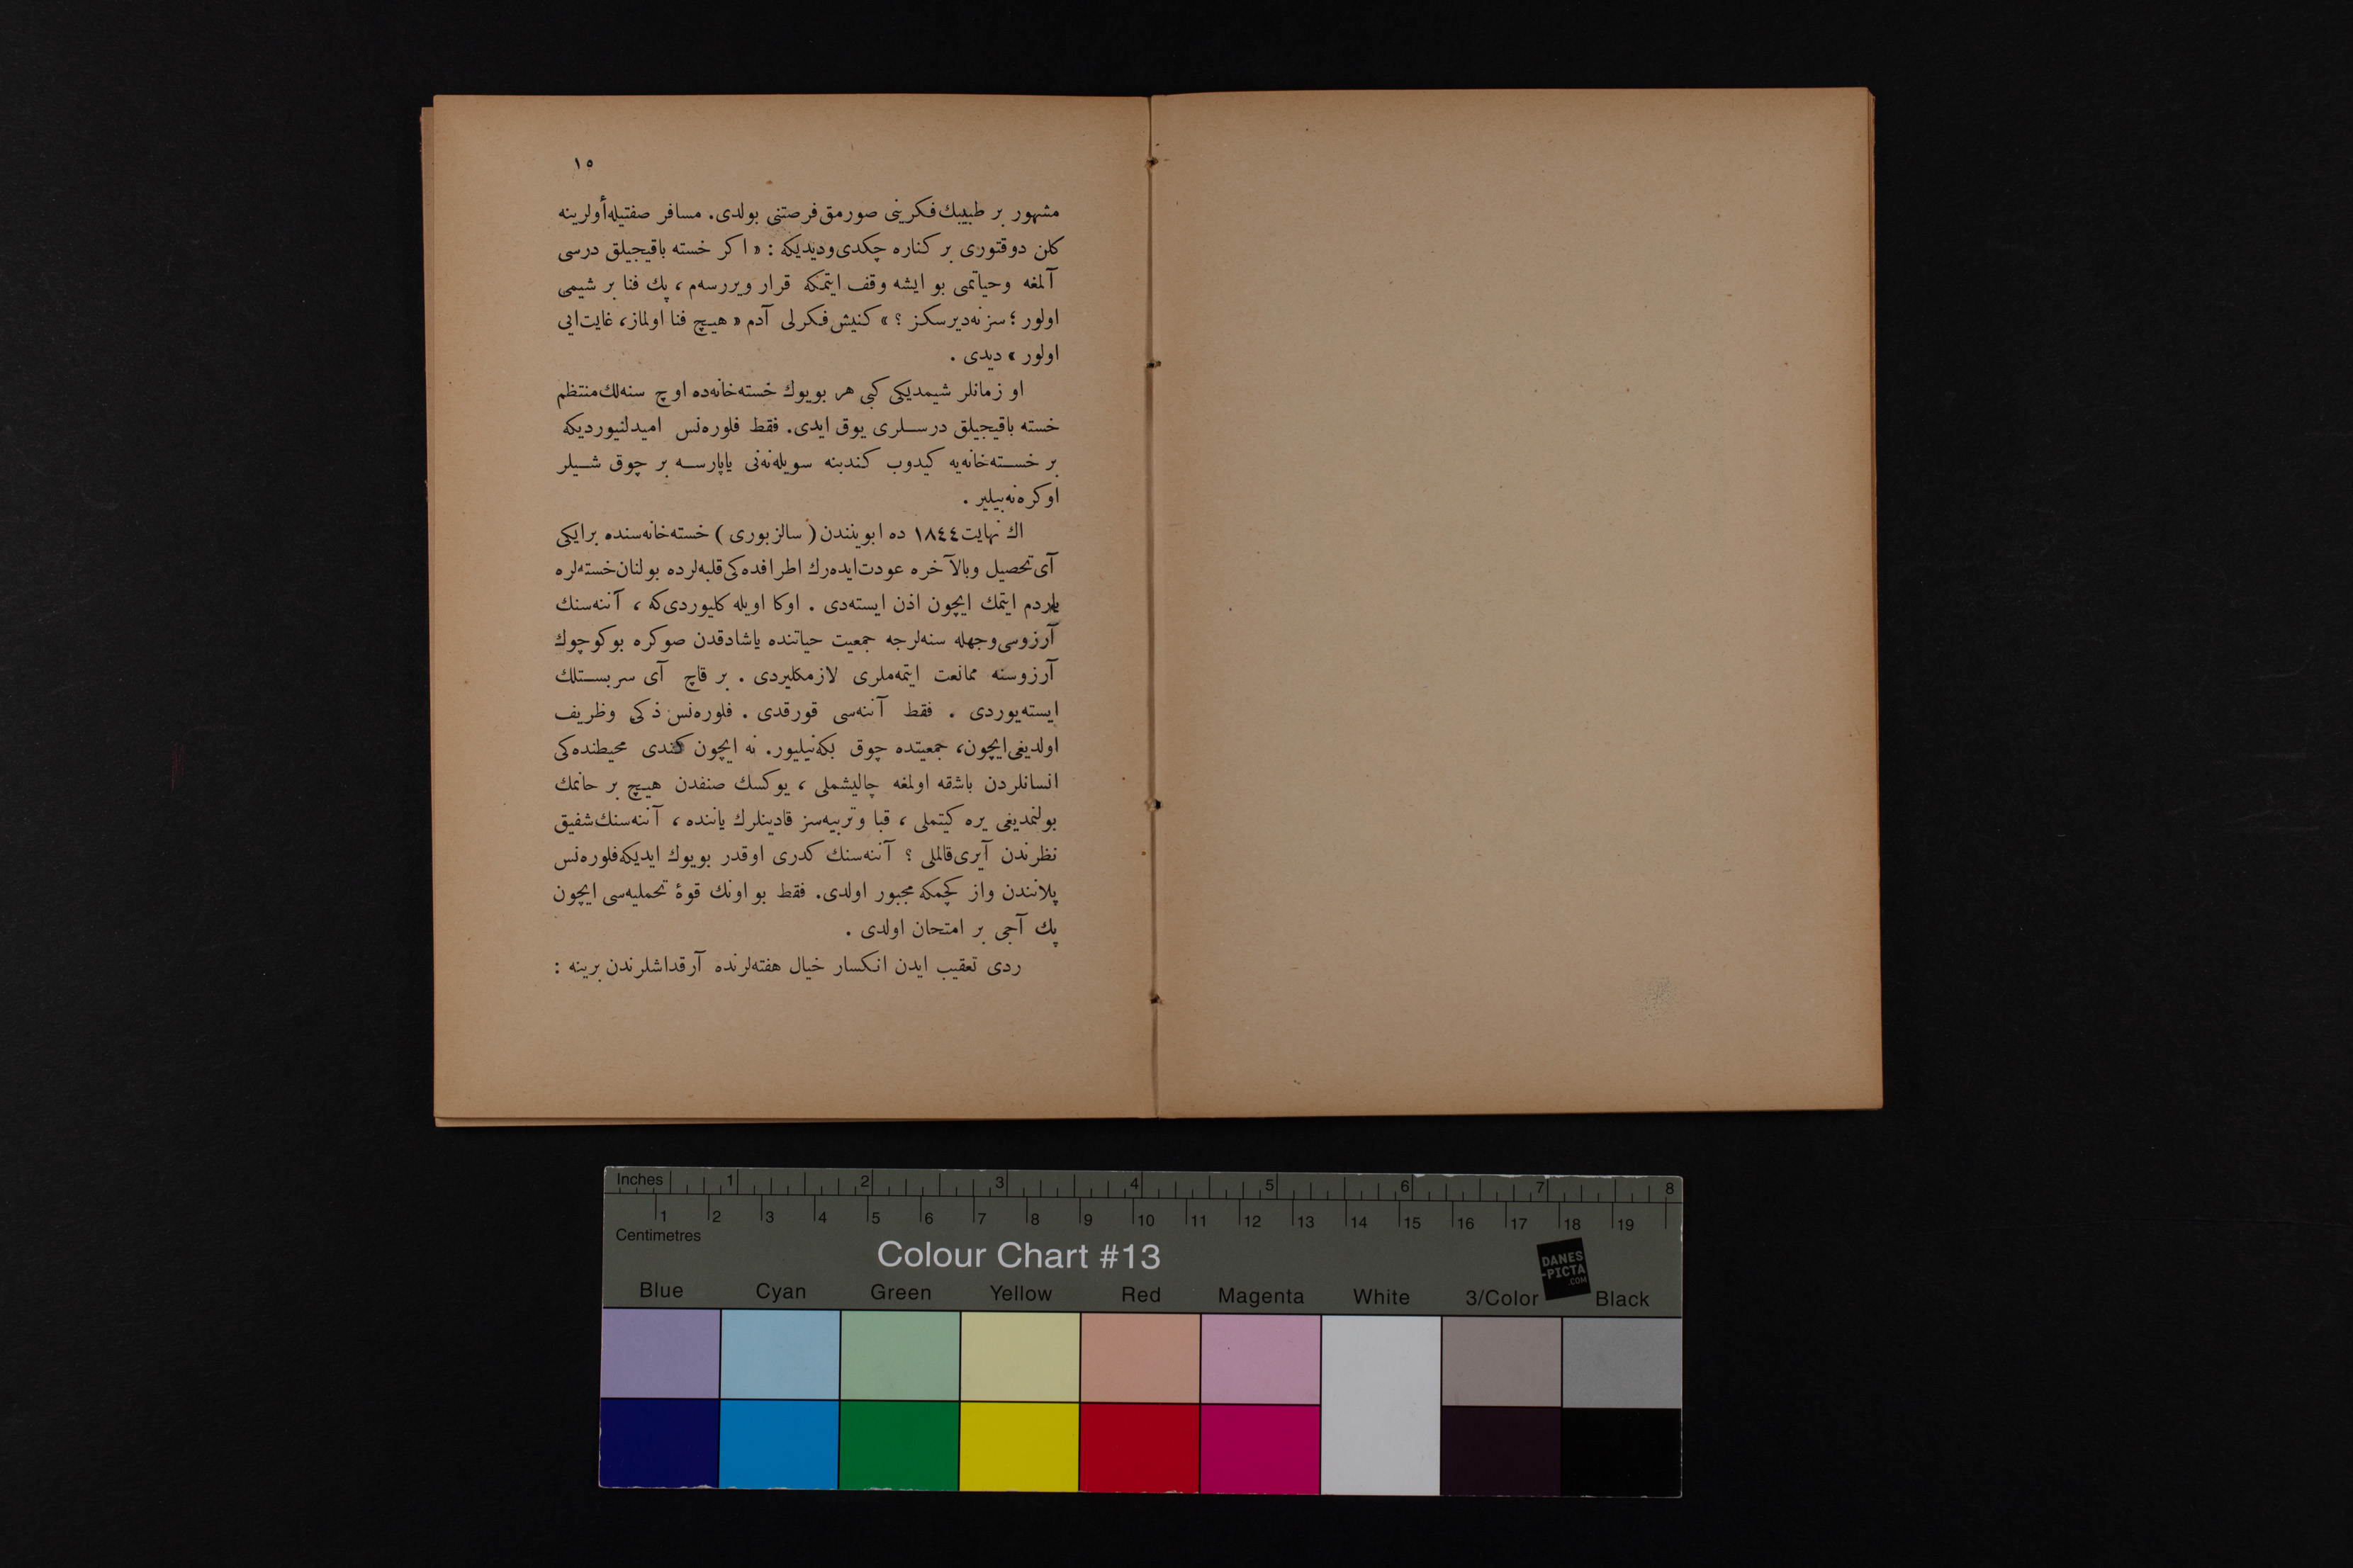 ١٥
مشهور بر طبيبك فكرينى صورمق فرصتنى بولدى. مسافر صفتيله أولرينه
كلن دوقتورى بر كناره چكدى وديديكه : « اكر خسته باقيجيلق درسى
آلمغه وحياتمى بو ايشه وقف ايتمكه قرار ويررسه‌م ، پك فنا بر شيمى
اولور ؛ سز نه ديرسكز ؟ » كنيش فكرلى آدم « هيچ فنا اولماز، غايت ايى
اولور » ديدى .
او زمانلر شيمديكى كبى هر بويوك خسته‌خانه‌ده اوچ سنه‌لك منتظم
خسته باقيجيلق درسلرى يوق ايدى. فقط فلوره‌نس اميدلنيورديكه
بر خسته‌خانه‌يه كيدوب كندينه سويله‌نه‌نى ياپارسه بر چوق شيلر
اوكره‌نه‌بيلير .
اك نهايت ١٨٤٤ ده ابويندن ( سالزبورى ) خسته‌خانه‌سنده بر ايكى
آى تحصيل وبالآخره عودت ايده‌رك اطرافده‌كى قلبه‌لرده بولنان خسته‌لره
ياردم ايتمك ايچون اذن ايسته‌دى . اوكا اويله كليوردى كه ، آننه‌سنك
آرزوسى وجهله سنه‌لرجه جمعيت حياتنده ياشادقدن صوكره بو كوچوك
آرزوسنه ممانعت ايتمه‌ملرى لازمكليردى . بر قاچ آى سربستلك
ايسته‌يوردى . فقط آننه‌سى قورقدى . فلوره‌نس ذكى وظريف
اولديغى ايچون، جمعيتده چوق بكه‌نيليور. نه ايچون كندى محيطنده‌كى
انسانلردن باشقه اولمغه چاليشملى ، يوكسك صنفدن هيچ بر خانمك
بولنمديغى يره كيتملى ، قبا وتربيه‌سز قادينلرك ياننده ، آننه‌سنك شفيق
نظرندن آيرى قالملى ؟ آننه‌سنك كدرى اوقدر بويوك ايديكه فلوره‌نس
پلانندن واز كچمكه مجبور اولدى. فقط بو اونك قوهٔ تحمليه‌سى ايچون
پك آجى بر امتحان اولدى .
ردى تعقيب ايدن انكسار خيال هفته‌لرنده آرقداشلرندن برينه :
Inches 1 2 3 4 5 6 7 8
1 2 3 4 5 6 7 8 9 10 11 12 13 14 15 16 17 18 19
Centimetres
Colour Chart #13
DANES
-PICTA
.COM
Blue Cyan Green Yellow Red Magenta White 3/Color Black